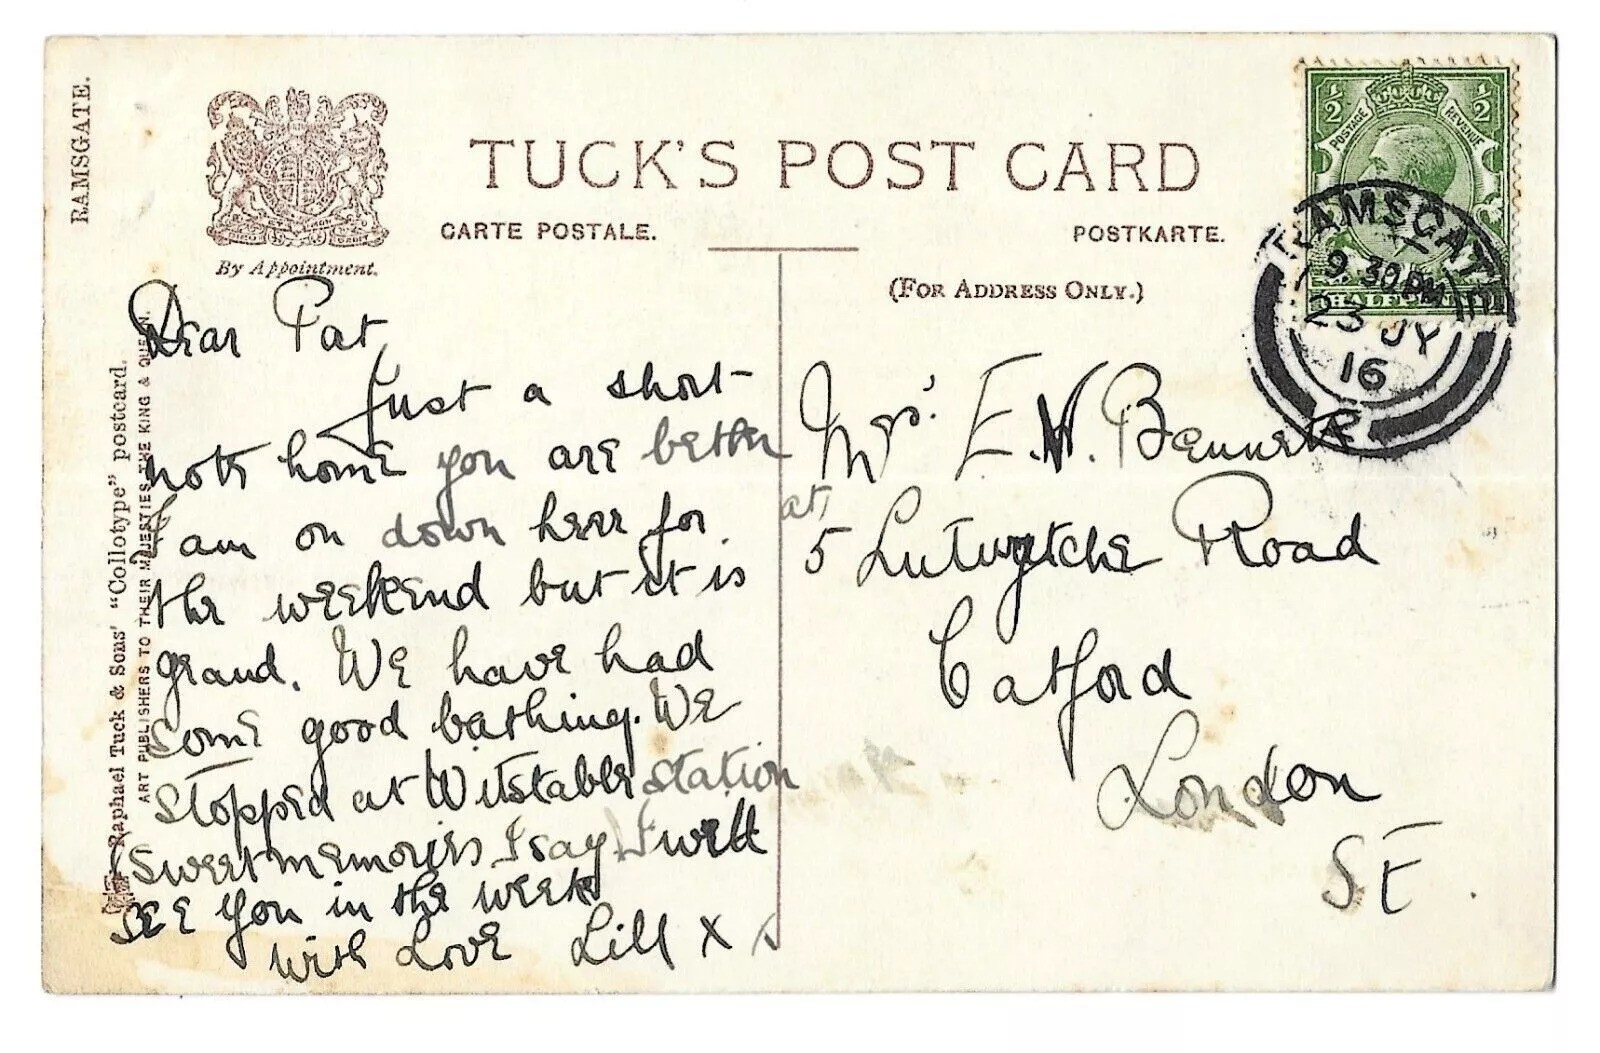 RAMSGATE.
By Appointment.
TUCK'S POST CARD
CARTE POSTALE.
POSTKARTE.
(FOR ADDRESS ONLY.)
½ ½
POSTAGE REVENUE
HALFPENNY
RAMSGATE
9.30PM
23 JY
16
Raphael Tuck & Sons' "Collotype" postcard.
ART PUBLISHERS TO THEIR MAJESTIES THE KING & QUEEN.
Dear Pat
Just a short
note home you are better
I am on down here for
the weekend but it is
grand. We have had
some good bathing. We
stopped at Witstable station
Sweet memories I say I will
see you in the week
With Love Lill x x
Mrs. E. W. Bennett
at
5 Lutwytche Road
Catford
London
SE.